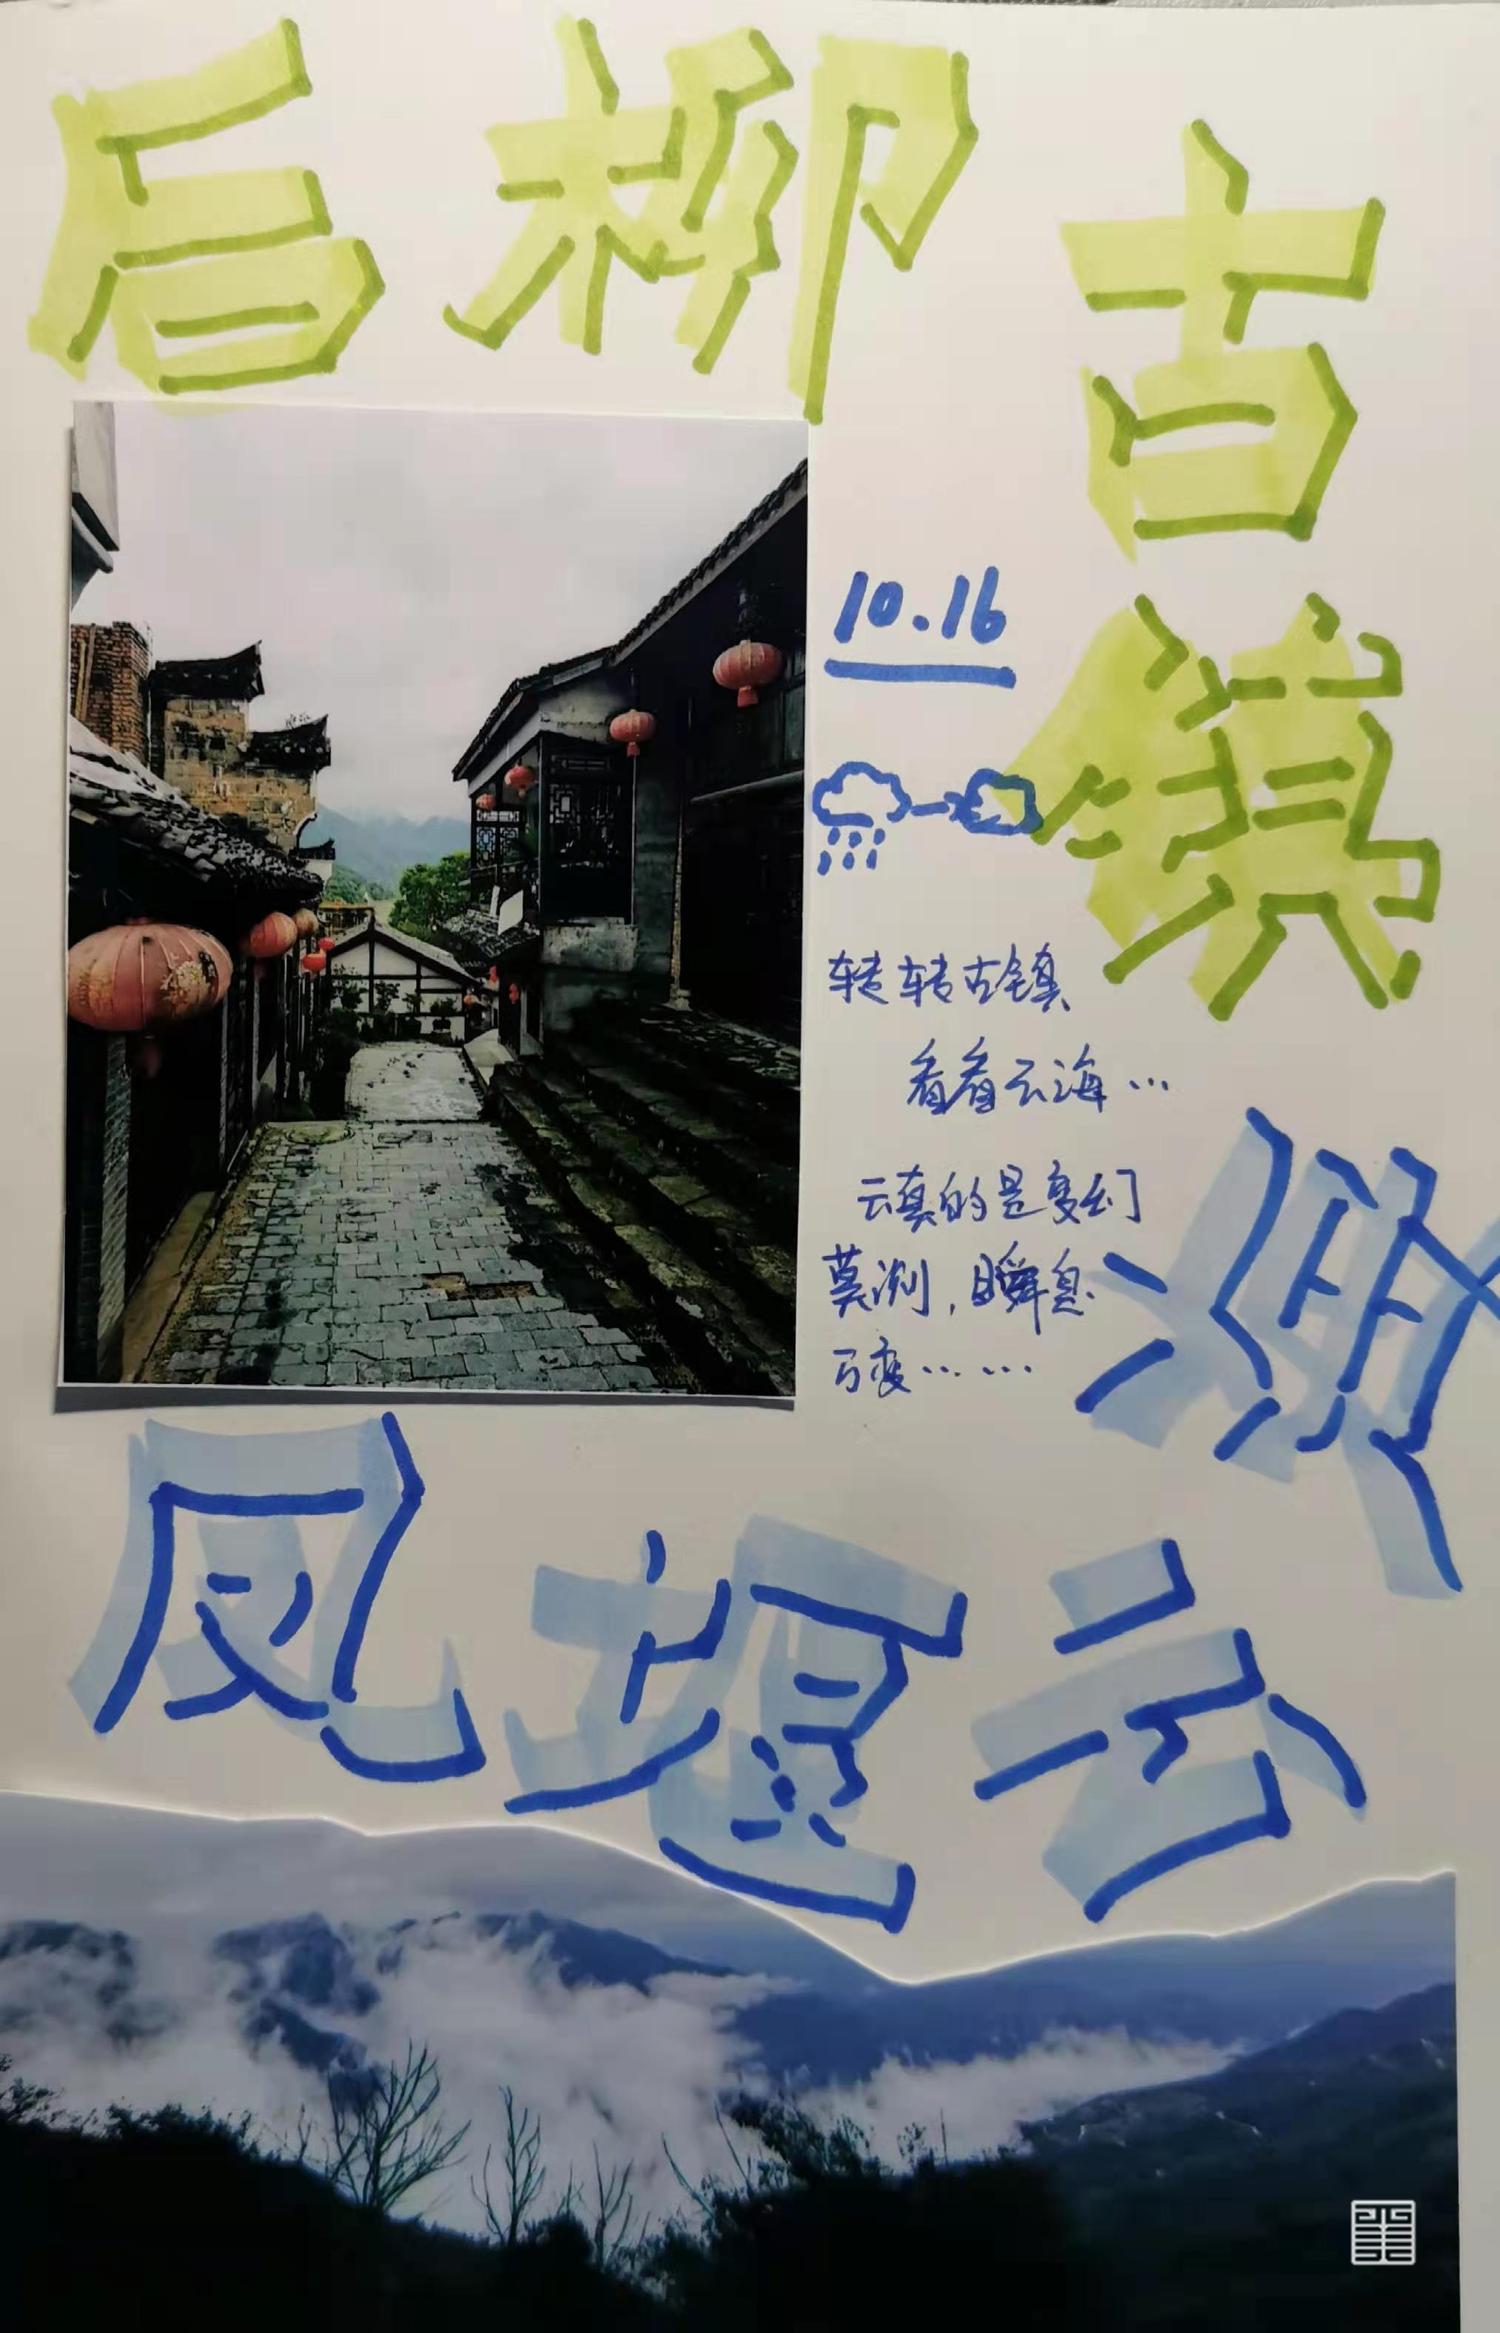 后柳古镇
10.16
转转古镇
看看云海…
云真的是变幻
莫测，瞬息
万变……
凤堰云海